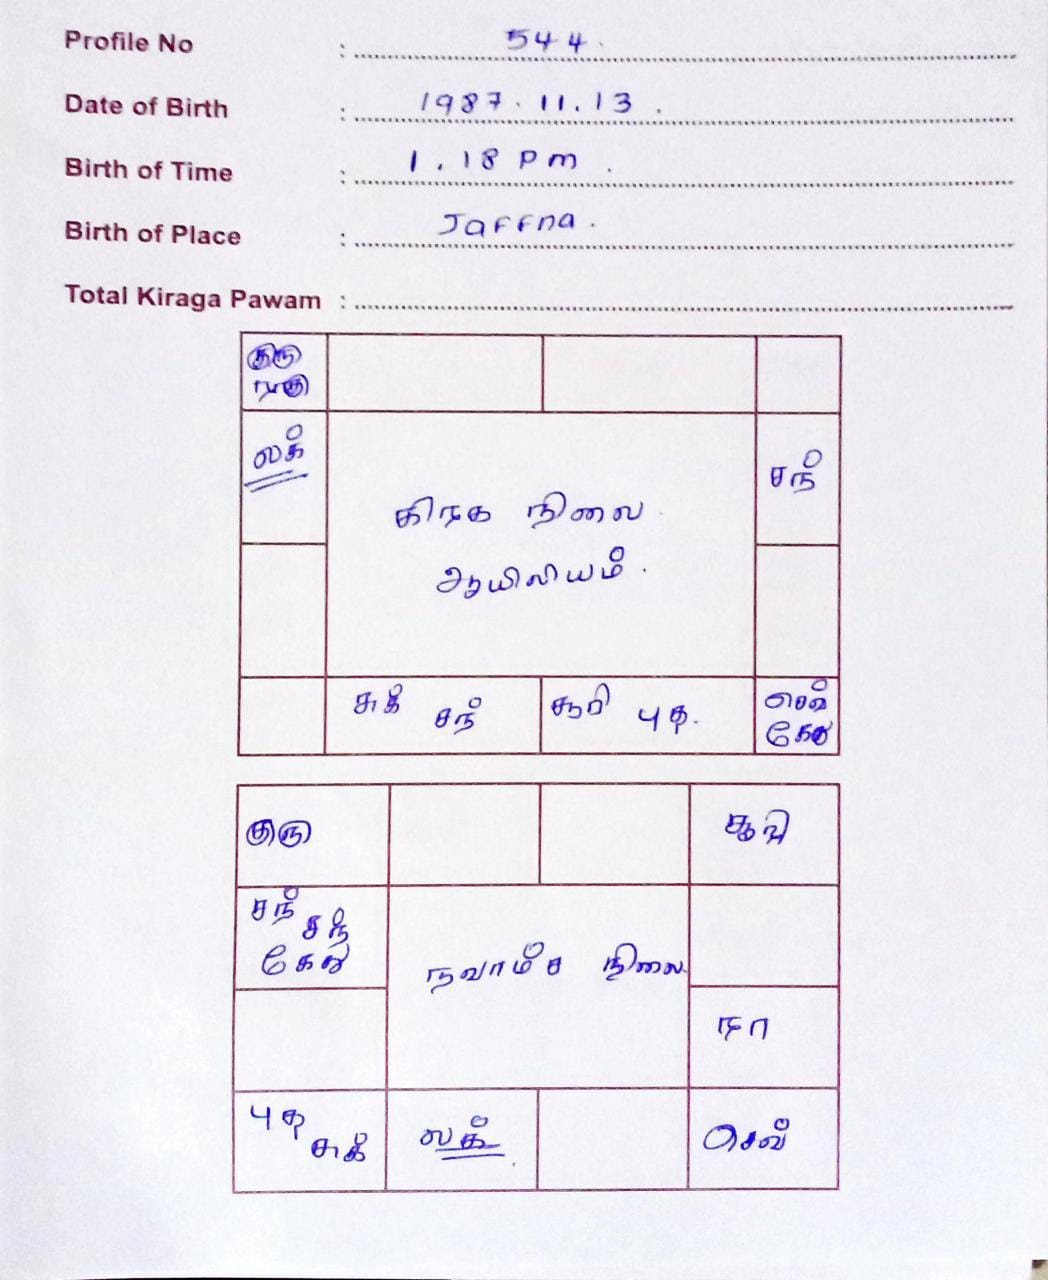 Profile No : 544.
Date of Birth : 1987.11.13.
Birth of Time : 1.18 pm.
Birth of Place : Jaffna.
Total Kiraga Pawam :
குரு
ராகு
லக்
சந்
கிரக நிலை
ஆயிலியம்.
சுக் சந்
சூரி புத.
செவ்
கேது
குரு
சூரி
சந் சந்
கேது
நவாம்ச நிலை
ரா
புத
சுக்
லக்
செவ்